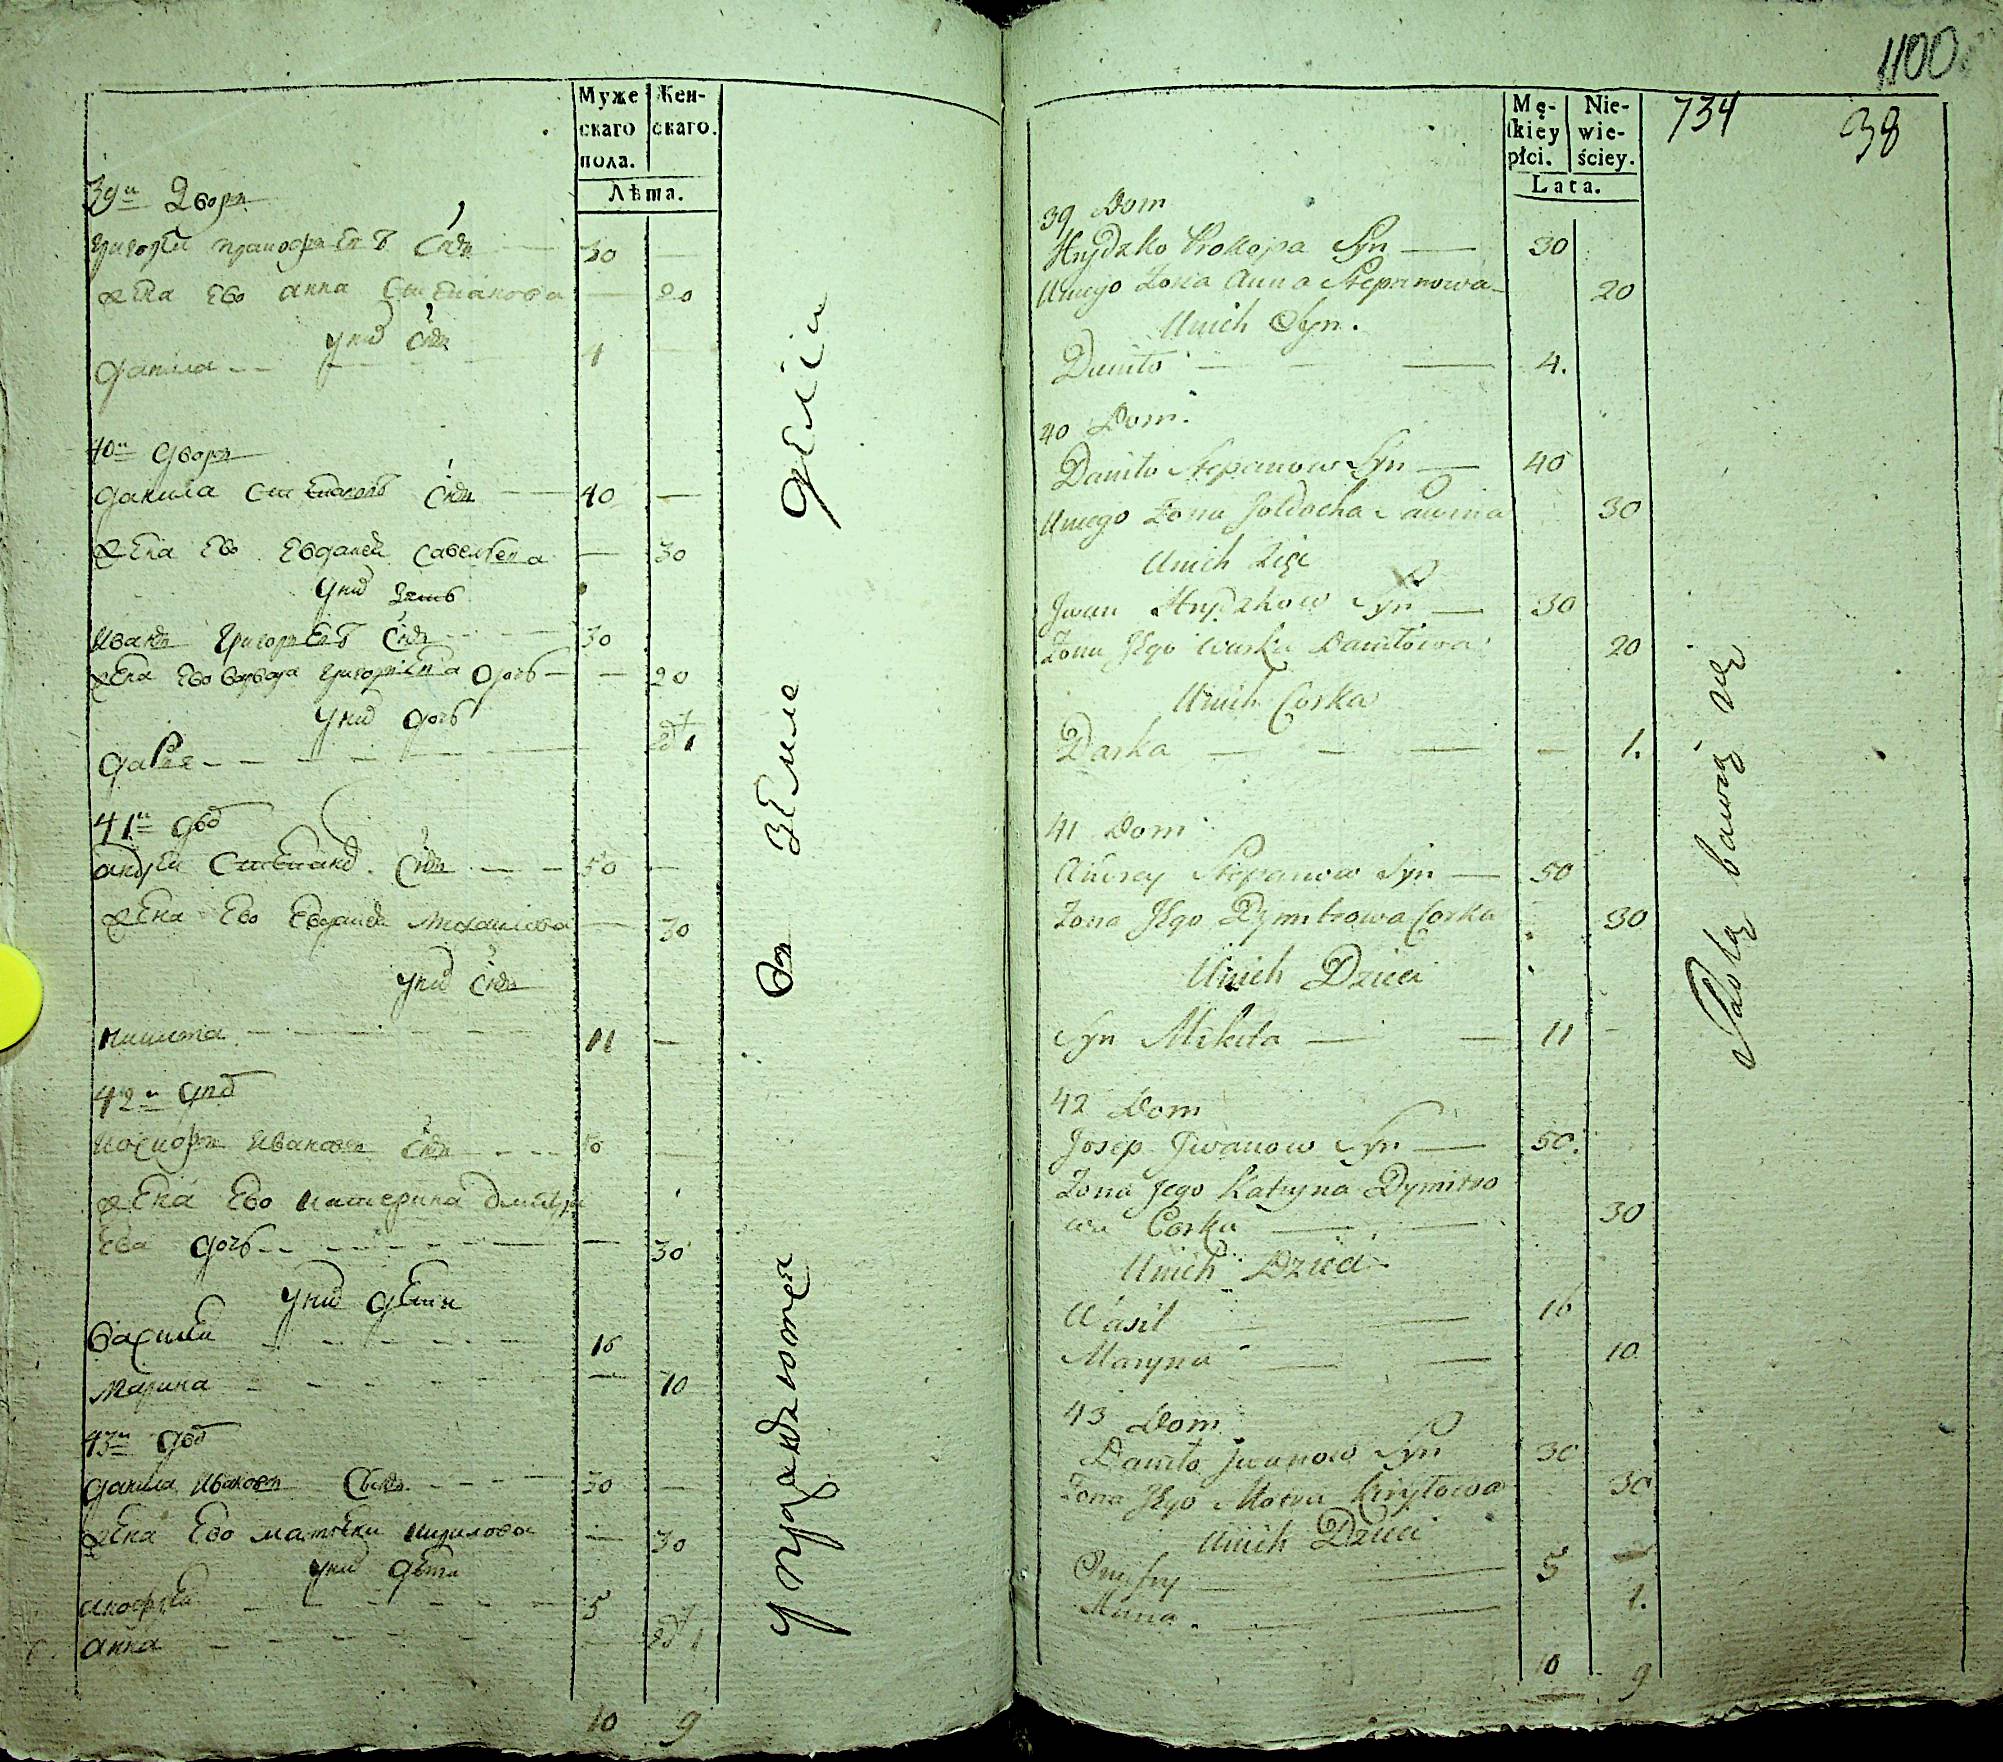 Муже
скаго
пола.
Жен-
скаго.
Лѣта.
39й Дворъ
Григорей Прокофьевъ Снъ 30
Жена Ево Анна Степанова 20
Уних Снъ
Данила 4
40й Дворъ
Данила Степановъ Снъ 40
Жена Ево Савельева 30
Уних Зять
Иванъ Григорьевъ Снъ 30
Жена Ево Варвара Григорьева Дочь 20
Уних Дочь
Дарья 1
41й Двор
Андрей Степанов Снъ 50
Жена Ево Михайлова 30
Уних Снъ
Никита 11
42й Двор
Иосифъ Ивановъ Снъ 50
Жена Ево Катерина Дмитри
Ева Дочь 30
Уних Дети
Василий 16
Марина 10
43й Двор
Данила Ивановъ Сынъ 30
Жена Ево Кирилова 30
Уних Дети
Анофрей 5
Анна 1
10 9
упражняются въ земле делии
1100
Mę-
kiéy
płci.
Nie-
wie-
ściey.
Lata.
734 38
39 Dom
Hrydzko Prokopa Syn 30
Unego Zona Anna Stepanowa 20
Unich Syn.
Daniło 4.
40 Dom.
Daniło Stepanow Syn 40
Unego Zona 30
Unich Zięć
Jwan Hrydzkow Syn 30
Zona Jego Warka Daniłowa 20
Unich Corka
Darka 1.
41 Dom
Andrey Stepanow Syn 50
Zona Jego Dymitrowa Corka 30
Unich Dzieci
Syn Mikita 11
42 Dom
Josep Jwanow Syn 50.
Zona Jego Katryna Dymitro
wa Corka 30
Unich Dzieci
Wasil 16
Maryna 10
43 Dom
Daniło Jwanow Syn 30
Zona Jego Motra Kiryłowa 30
Unich Dzieci
Onufry 5
Hana 1.
10 9
Rolą bawią się